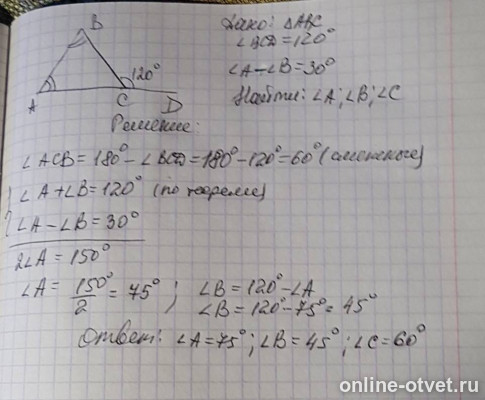 B
120°
A
C
D
Дано: △ABC
∠BCD=120°
∠A-∠B=30°
Найти: ∠A; ∠B; ∠C
Решение:
∠ACB=180°-∠BCD=180°-120°=60° (смежные)
∠A+∠B=120° (по теореме)
∠A-∠B=30°
2∠A=150°
∠A=150°/2=75°; ∠B=120°-∠A
∠B=120°-75°=45°
Ответ: ∠A=75°; ∠B=45°; ∠C=60°
online-otvet.ru